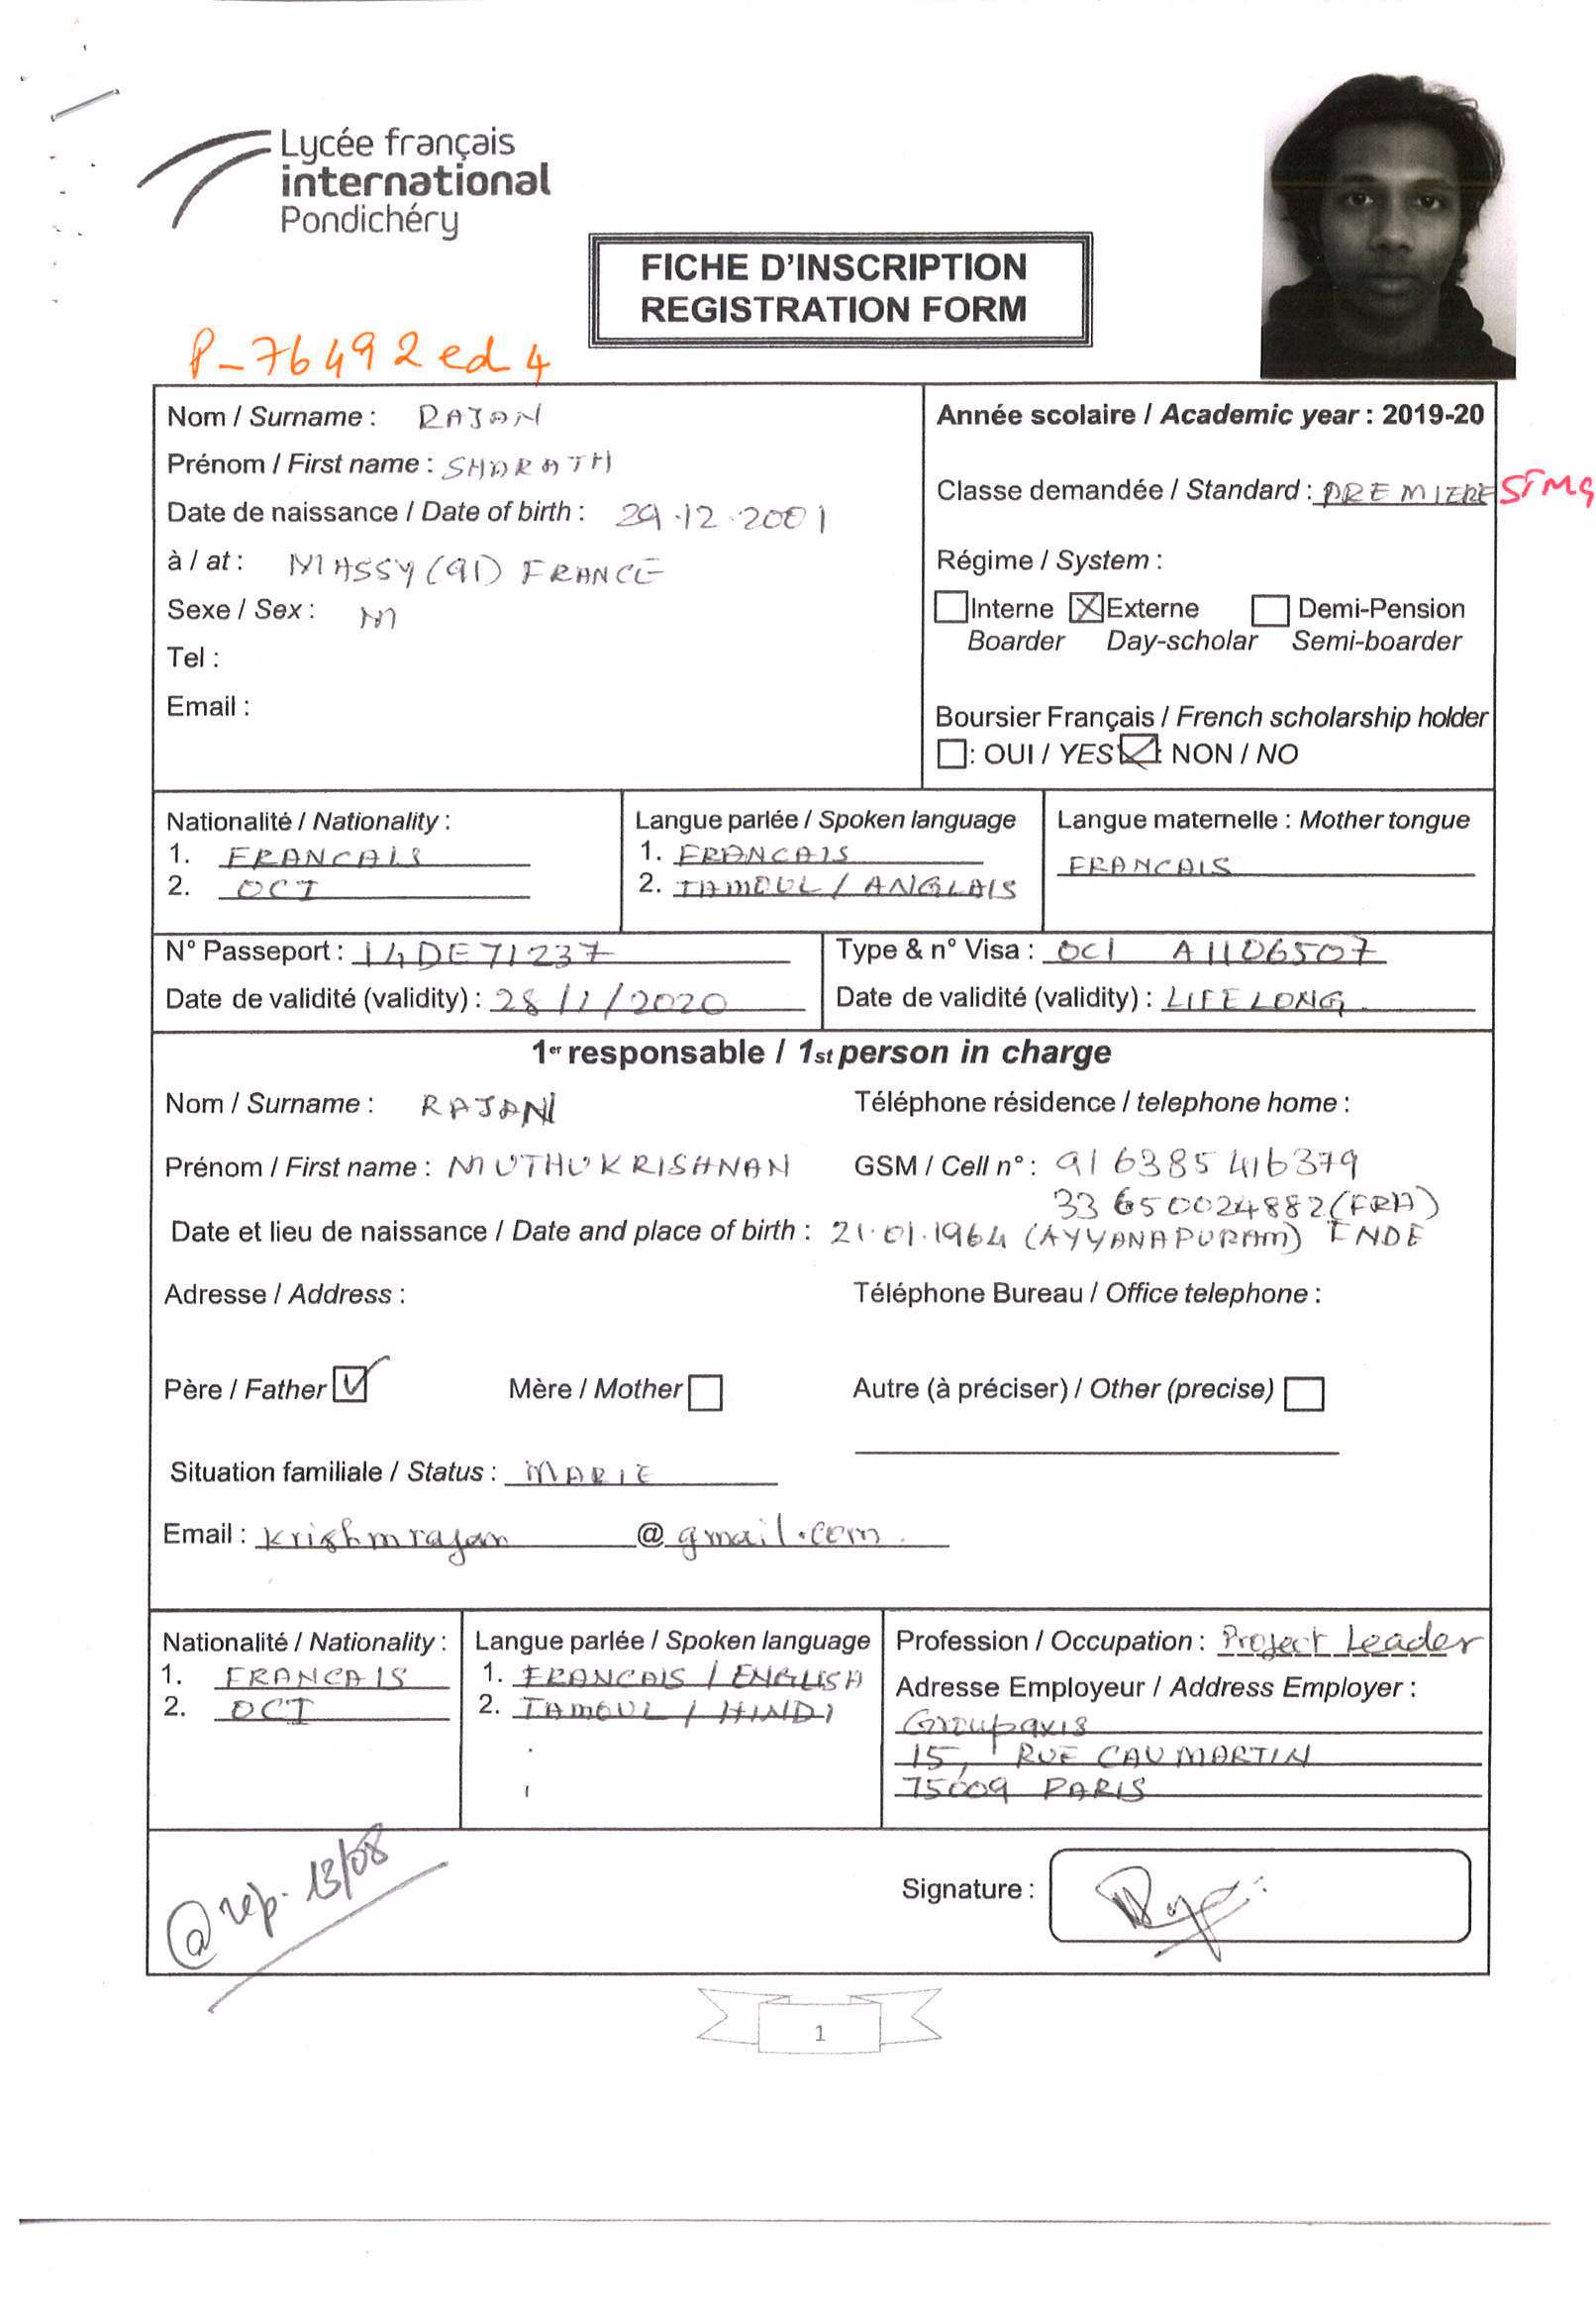 Lycée français
international
Pondichéry
FICHE D'INSCRIPTION
REGISTRATION FORM
P-76492ed4
Nom / Surname : RAJAN
Prénom / First name : SHARATH
Date de naissance / Date of birth : 29.12.2001
à / at : MASSY (91) FRANCE
Sexe / Sex : M
Tel :
Email :
Année scolaire / Academic year : 2019-20
Classe demandée / Standard : PREMIERE STMG
Régime / System :
Interne Externe Demi-Pension
Boarder Day-scholar Semi-boarder
Boursier Français / French scholarship holder
: OUI / YES : NON / NO
Nationalité / Nationality :
1. FRANCAIS
2. OCI
Langue parlée / Spoken language
1. FRANCAIS
2. TAMOUL / ANGLAIS
Langue maternelle : Mother tongue
FRANCAIS
N° Passeport : 14DE71237
Date de validité (validity) : 28/1/2020
Type & n° Visa : OCI A1106507
Date de validité (validity) : LIFE LONG
1er responsable / 1st person in charge
Nom / Surname : RAJAN
Téléphone résidence / telephone home :
Prénom / First name : MUTHUKRISHNAN
GSM / Cell n° : 91 6385 416379
33 650024882 (FRA)
Date et lieu de naissance / Date and place of birth : 21.01.1964 (AYYANAPURAM) INDE
Adresse / Address :
Téléphone Bureau / Office telephone :
Père / Father Mère / Mother Autre (à préciser) / Other (precise)
Situation familiale / Status : MARIE
Email : krishmrajan @ gmail.com
Nationalité / Nationality :
1. FRANCAIS
2. OCI
Langue parlée / Spoken language
1. FRANCAIS / ENGLISH
2. TAMOUL / HINDI
Profession / Occupation : Project Leader
Adresse Employeur / Address Employer :
Groupaxis
15, RUE CAUMARTIN
75009 PARIS
@ rep. 13/08
Signature :
1